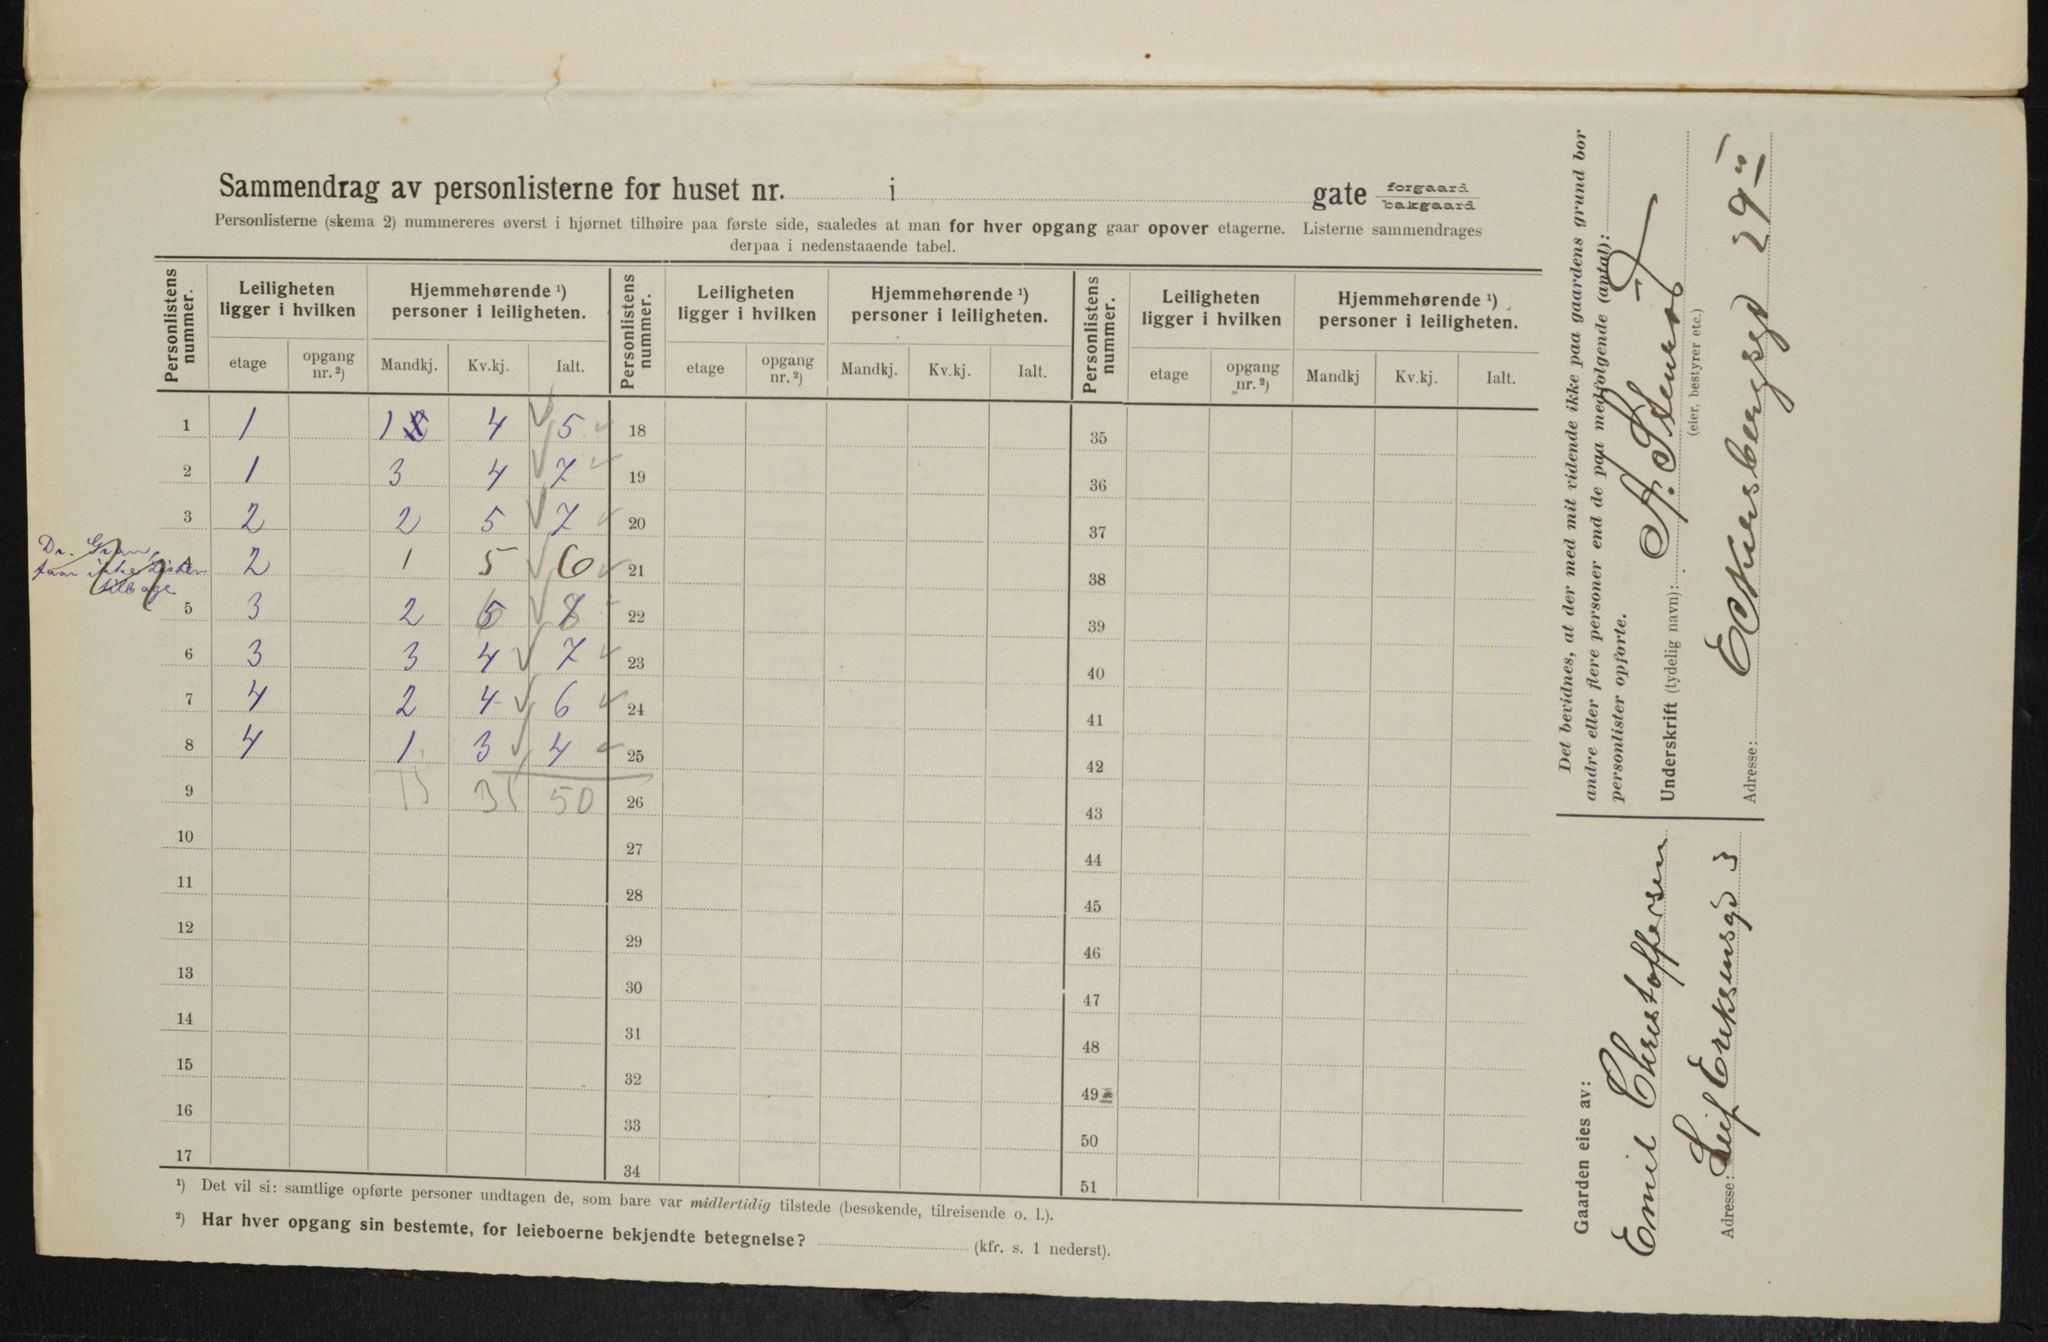 Sammendrag av personlisterne for huset nr. i gate forgaard bakgaard
Personlisterne (skema 2) nummereres øverst i hjørnet tilhøire paa første side, saaledes at man for hver opgang gaar opover etagerne. Listerne sammendrages
derpaa i nedenstaaende tabel.
Personlistens nummer. Leiligheten ligger i hvilken Hjemmehørende ¹) personer i leiligheten. Personlistens nummer. Leiligheten ligger i hvilken Hjemmehørende ¹) personer i leiligheten. Personlistens nummer. Leiligheten ligger i hvilken Hjemmehørende ¹) personer i leiligheten.
etage opgang nr. ²) Mandkj. Kv.kj. Ialt. etage opgang nr. ²) Mandkj. Kv.kj. Ialt. etage opgang nr. ²) Mandkj Kv.kj. Ialt.
1 1 1 4 5 18 35
2 1 3 4 7 19 36
3 2 2 5 7 20 37
Dr. Gran
4 2 1 5 6 21 38
tilbage
5 3 2 6 8 22 39
6 3 3 4 7 23 40
7 4 2 4 6 24 41
8 4 1 3 4 25 42
9 15 35 50 26 43
10 27 44
11 28 45
12 29 46
13 30 47
14 31 48
15 32 49
16 33 50
17 34 51
¹) Det vil si: samtlige opførte personer undtagen de, som bare var midlertidig tilstede (besøkende, tilreisende o. l.).
²) Har hver opgang sin bestemte, for leieboerne bekjendte betegnelse? (kfr. s. 1 nederst).
Det bevidnes, at der med mit vidende ikke paa gaardens grund bor
andre eller flere personer end de paa medfølgende (antal):
personlister opførte.
Underskrift (tydelig navn):
(eier, bestyrer etc.)
Adresse: Eckersbergsgd 29 II
Gaarden eies av:
Emil Christoffersen
Adresse: Leif Eriksensgd 3